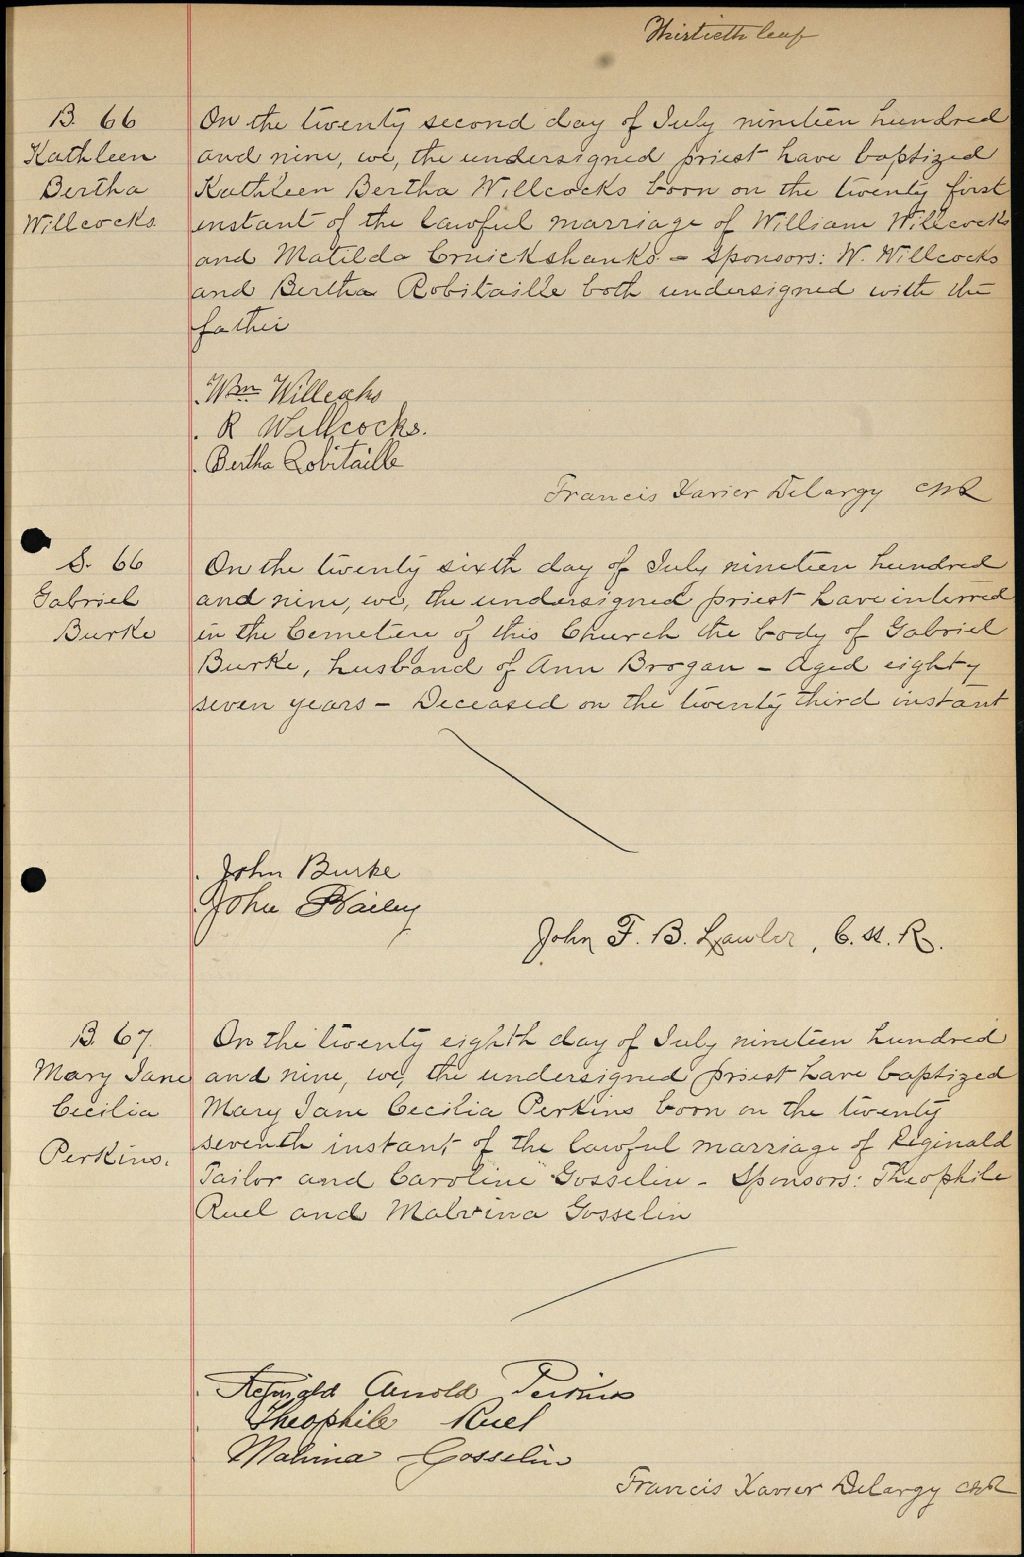 Thirtieth leaf
B. 66
Kathleen
Bertha
Willcocks.
On the twenty second day of July nineteen hundred
and nine, we, the undersigned priest have baptized
Kathleen Bertha Willcocks born on the twenty first
instant of the lawful marriage of William Willcocks
and Matilda Cruickshanks - Sponsors: W. Willcocks
and Bertha Robitaille both undersigned with the
father
Wm Willcocks
R Willcocks.
Bertha Robitaille
Francis Xavier Delargy CSSR
S. 66
Gabriel
Burke
On the twenty sixth day of July nineteen hundred
and nine, we, the undersigned priest have interred
in the Cemetiere of this Church the body of Gabriel
Burke, husband of Ann Brogan - Aged eighty
seven years - Deceased on the twenty third instant
John Burke
John
John F. B. Lawler, C.SS.R.
B. 67.
Mary Jane
Cecilia
Perkins.
On the twenty eighth day of July nineteen hundred
and nine, we, the undersigned priest have baptized
Mary Jane Cecilia Perkins born on the twenty
seventh instant of the lawful marriage of Reginald
Tailor and Caroline Gosselin - Sponsors: Theophile
Ruel and Malvina Gosselin
Reginald Arnold Perkins
Theophile Ruel
Malvina Gosselin
Francis Xavier Delargy CSSR